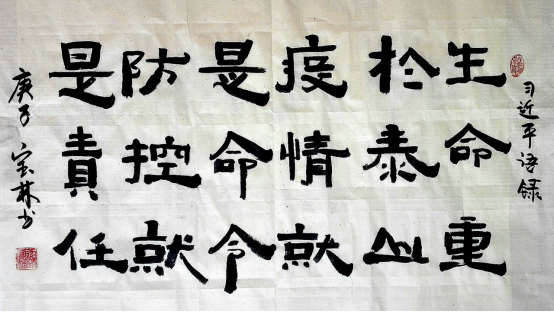 习近平语录
生命重
於泰山
疫情就
是命令
防控就
是責任
庚子宝林书